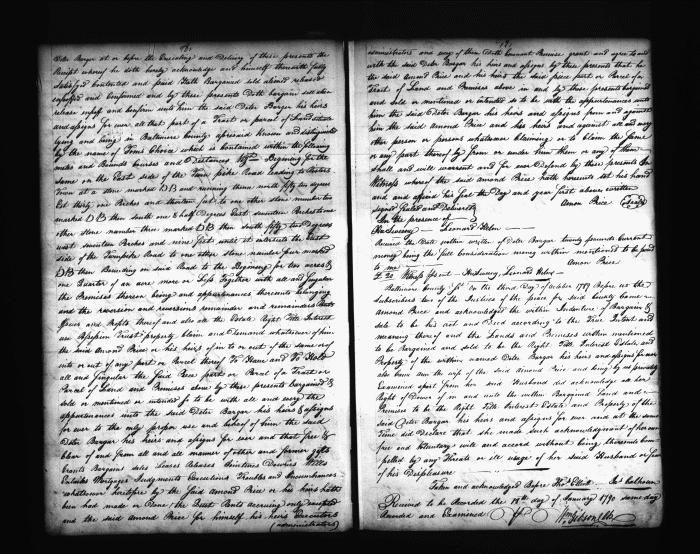 Peter Barger at or before the Ensealing and Delivery of these presents the
Receipt whereof he doth hereby acknowledge and himself therewith fully
Satisfyed Contented and paid Hath Bargained sold aliened released
enfeoffed and Confirmed and by these presents Doth bargain sell alien
release enfeoff and confirm unto him the said Peter Barger his heirs
and assigns for ever all that part of a Tract or parcel of Land situate
lying and being in Baltimore County aforesaid known and distinguished
by the name of Choice which is contained within the following
metes and Bounds Courses and Distances Begining for the
same on the East side of the Turn pike Road leading to
Town at a stone marked DB and running thence north fifty two degrees
Et thirty one Perches and thirteen feet to one other stone number two
marked DB then south one & half Degrees East seventeen Perches to one
other stone number three marked DB then south fifty two Degrees
west seventeen Perches and nine feet until it intersects the East
side of the Turnpike Road to one other stone number four marked
DB then Bounding on said Road to the Begining for two acres &
one Quarter of an acre more or Less Together with all and singular
the Premises thereon being and appurtenances thereunto belonging
and the reversion and reversions remainder and remainders Rents
Issues and Rights thereof and also all the Estate Right Title Interest
use Possession Trust property claim and Demand whatsoever of him
the said Amond Price or his heirs of in to or out of the same or of
into or out of any part or Parcel thereof To Have and To Hold
all and singular the said Piece part or Parcel of a Tract or
Parcel of Land and Premises above by these presents bargained &
sold or mentioned or intended so to be with all and every the
appurtenances unto the said Peter Barger his heirs & assigns
for ever to the only proper use and behoof of him the said
Peter Barger his heirs and assigns for ever and that free &
clear of and from all and all manner of other and former gifts
Grants Bargains sales Leases Releases Jointures Dowries Wills
Entails Mortgages Judgments Executions Troubles and Incumbrances
whatsoever heretofore by the said Amond Price or his heirs hath
been had made or Done the Quit Rents accruing only excepted
and the said Amond Price for himself his heirs Executors
(administrators)
administrators and every of them Doth Covenant Promise grant and agree to and
with the said Peter Barger his heirs and assigns by these presents that he
the said Amond Price and his heirs the said piece part or Parcel of a
Tract of Land and Premises above in and by these presents bargained
and sold or mentioned or intended so to be with the appurtenances unto
him the said Peter Barger his heirs and assigns from and against
him the said Amond Price and his heirs and against all and every
other person or persons whatsoever Claiming or to Claim the same
or any part thereof by from or under him them or any of them
shall and will warrant and for ever Defend by these presents In
Witness whereof the said Amond Price hath hereunto set his hand
and and affixed his seal the Day and year first above written
signed sealed and Delivered Amon Price (Seal)
In the presence of
Leonard Helm
Received the Date within written of Peter Barger twenty pounds Current
money being the full Consideration money within mentioned to be paid
to me Amon Price
Witness present Leonard Helm
Baltimore County Sc. On the third Day of October 1789 Before us the
Subscribers two of the Justices of the peace for said County Came
Amond Price and acknowledged the within Indenture of Bargain &
sale to be his act and Deed according to the True Intent and
meaning thereof and the Lands and Premises within mentioned
to be Bargained and sold to be the Right Title Interest Estate and
Property of the within named Peter Barger his heirs and assigns for ever
also Came Ann the wife of the said Amond Price and being by us privately
Examined apart from her said Husband did acknowledge all her
Right of Dower of in and unto the within Bargained Land and
Premises to be the Right Title Interest Estate and Property of the
said Peter Barger his heirs and assigns for ever and at the same
Time did Declare that she made such acknowledgment of her own
free and voluntary will and accord without being thereunto Com
pelled by any Threats or ill usage of her said Husband or fear
of his Displeasure
Taken and acknowledged Before Thos Elliott Jas Calhoun
Received to be Recorded the 18th day of January 1790 same day
Recorded and Examined Wm Gibson Clk